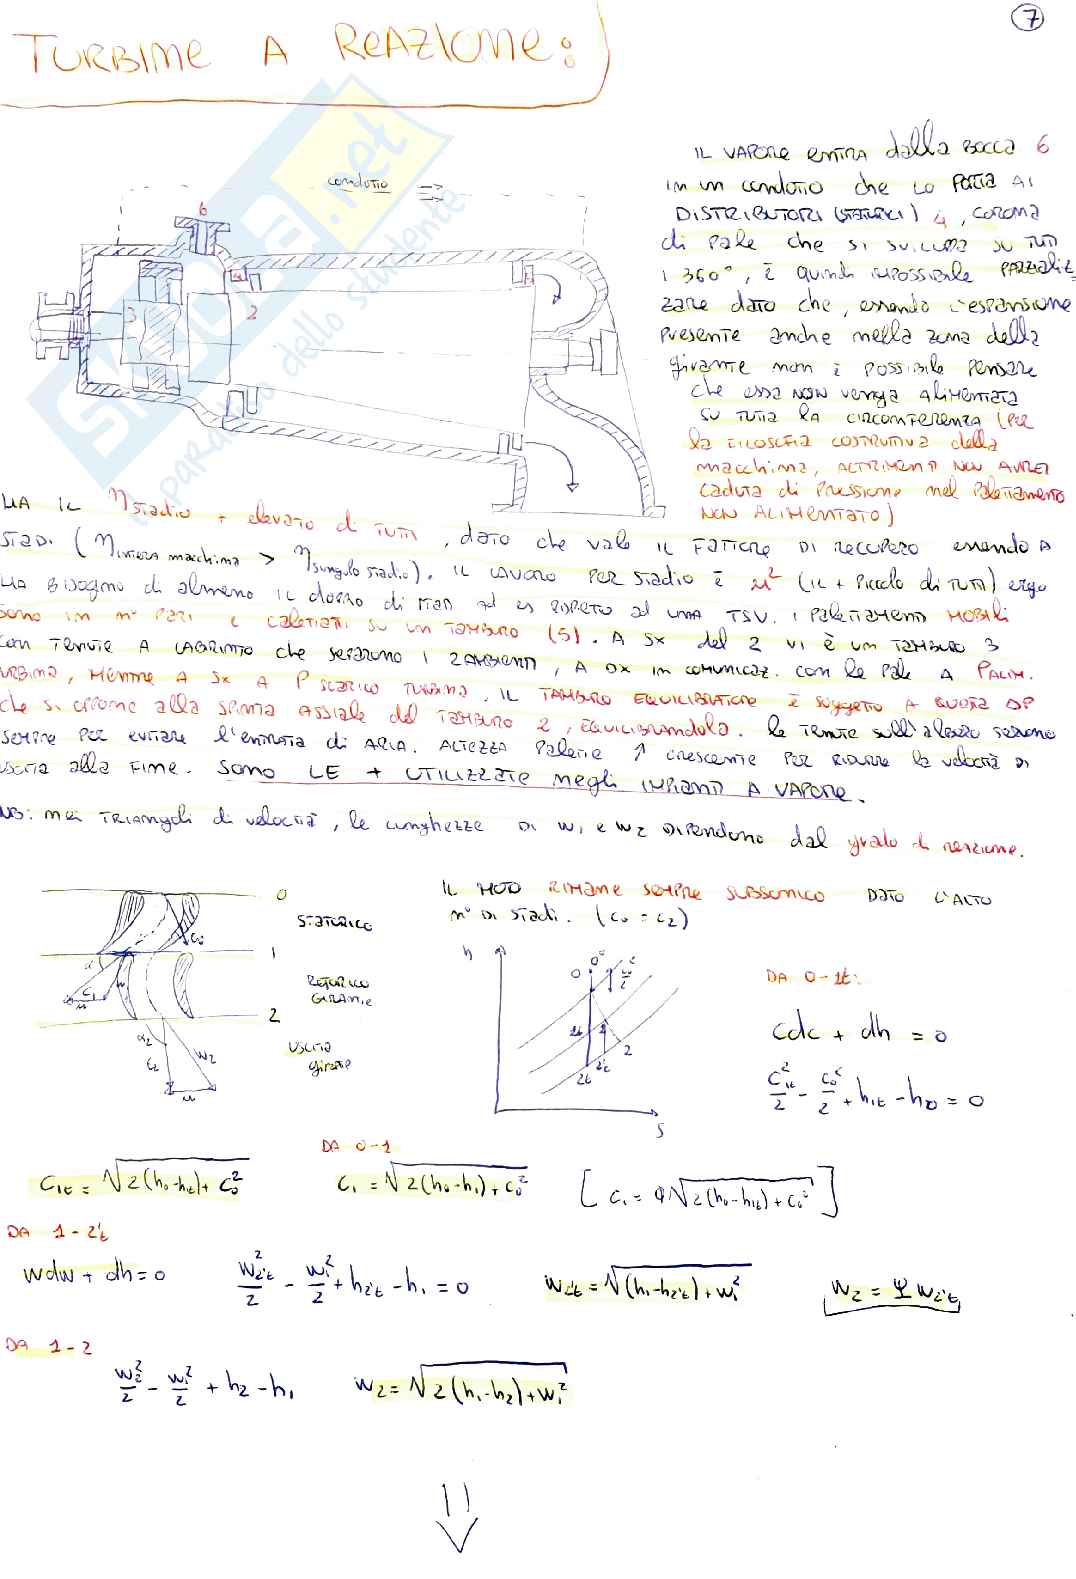 7
TURBINE A REAZIONE:
IL VAPORE ENTRA dalla BOCCA 6
in un condotto che LO PORTA AI
DISTRIBUTORI (STATORICI) 4, CORONA
di PALE che si SVILUPPA SU TUTTI
I 360°, È quindi IMPOSSIBILE PARZIALIZ-
ZARE dato che, essendo L'ESPANSIONE
PRESENTE anche nella zona della
girante non È POSSIBILE PENSARE
che essa NON venga ALIMENTATA
SU TUTTA LA CIRCONFERENZA (PER
la FILOSOFIA COSTRUTTIVA della
macchina, ALTRIMENTI NON AVREI
CADUTA di PRESSIONE nel PALETTAMENTO
NON ALIMENTATO)
condotto
6
4
3
2
HA IL η stadio + elevato di TUTTI, DATO che vale IL FATTORE DI RECUPERO essendo A
STADI (η intera macchina > η singolo stadio). IL LAVORO PER STADIO È u² (IL + PICCOLO di TUTTI) ergo
HA BISOGNO di almeno IL doppio di STADI ad es RISPETTO ad UNA TSV. I PALETTAMENTI MOBILI
sono in n° PARI E CALETTATI SU UN TAMBURO (5). A SX del 2 VI È UN TAMBURO 3
con TENUTE A LABIRINTO che separano I 2 AMBIENTI, A DX IN COMUNICAZ. con le PALE A P ALIM.
TURBINA, MENTRE A SX A P SCARICO TURBINA. IL TAMBURO EQUILIBRATORE È soggetto A QUESTA ΔP
che si oppone alla SPINTA ASSIALE del TAMBURO 2, EQUILIBRANDOLA. le TENUTE sull'albero servono
sempre PER evitare l'ENTRATA di ARIA. ALTEZZA Palette ↑ crescente PER RIDURRE la velocità DI
USCITA alla FINE. SONO LE + UTILIZZATE negli IMPIANTI A VAPORE.
NB: nei TRIANGOLI di velocità, le lunghezze DI w₁ e w₂ DIPENDONO dal grado di reazione.
IL MOTO RIMANE SEMPRE SUBSONICO DATO L'ALTO
n° DI STADI. (c₀ = c₂)
0
STATORICO
1
ROTORICO
GIRANTE
2
USCITA
girante
c₀
c₁
u
α₂
c₂
w₂
u
h
0
0°
2
2t
S
DA 0-1t:
cdc + dh = 0
c₁t²/2 - c₀²/2 + h₁t - h₀ = 0
DA 0-1
c₁t = √2(h₀-h₁t)+c₀²
c₁ = √2(h₀-h₁)+c₀²
[c₁ = φ√2(h₀-h₁t)+c₀²]
DA 1-2't
wdw + dh = 0
w₂'t²/2 - w₁²/2 + h₂'t - h₁ = 0
w₂'t = √(h₁-h₂'t)+w₁²
w₂ = ψ w₂'t
DA 1-2
w₂²/2 - w₁²/2 + h₂ - h₁
w₂ = √2(h₁-h₂)+w₁²